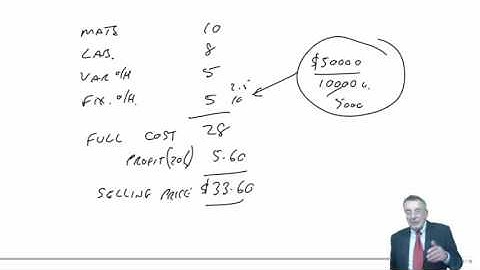 MATS 10
LAB. 8
VAR O/H 5
FIX. O/H. 5 2.5 10
FULL COST 28
PROFIT(20%) 5.60
SELLING PRICE $33.60
$50000
10000 u.
5000